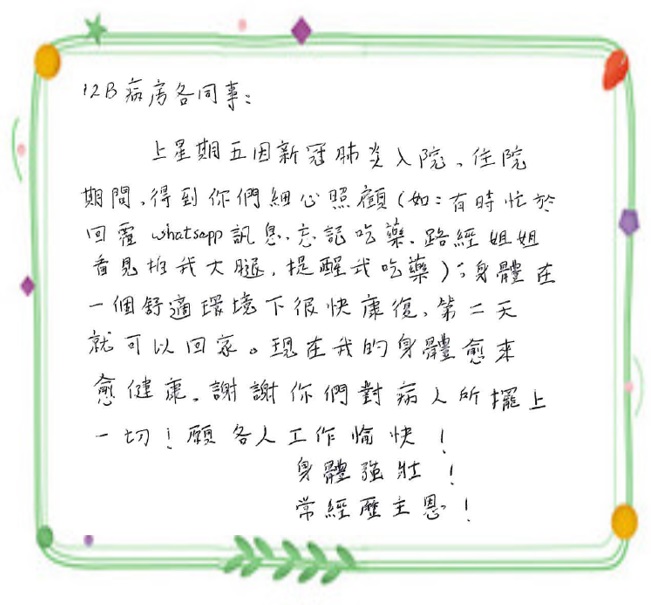 12B病房各同事：
上星期五因新冠肺炎入院、住院
期間、得到你們細心照顧（如：有時忙於
回覆 whatsapp 訊息、忘記吃藥、路經姐姐
看見拍我大腿，提醒我吃藥）；身體在
一個舒適環境下很快康復、第二天
就可以回家。現在我的身體愈來
愈健康。謝謝你們對病人所擺上
一切！願各人工作愉快！
身體強壯！
常經歷主恩！